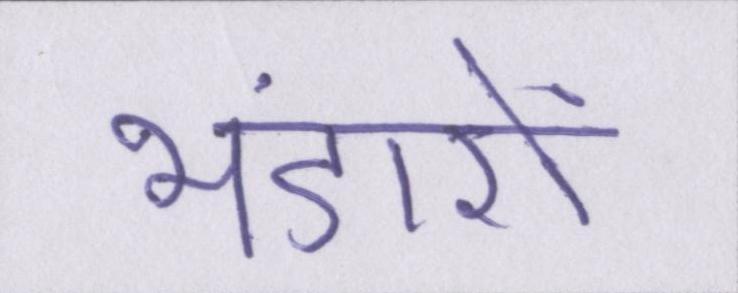 भंडारों